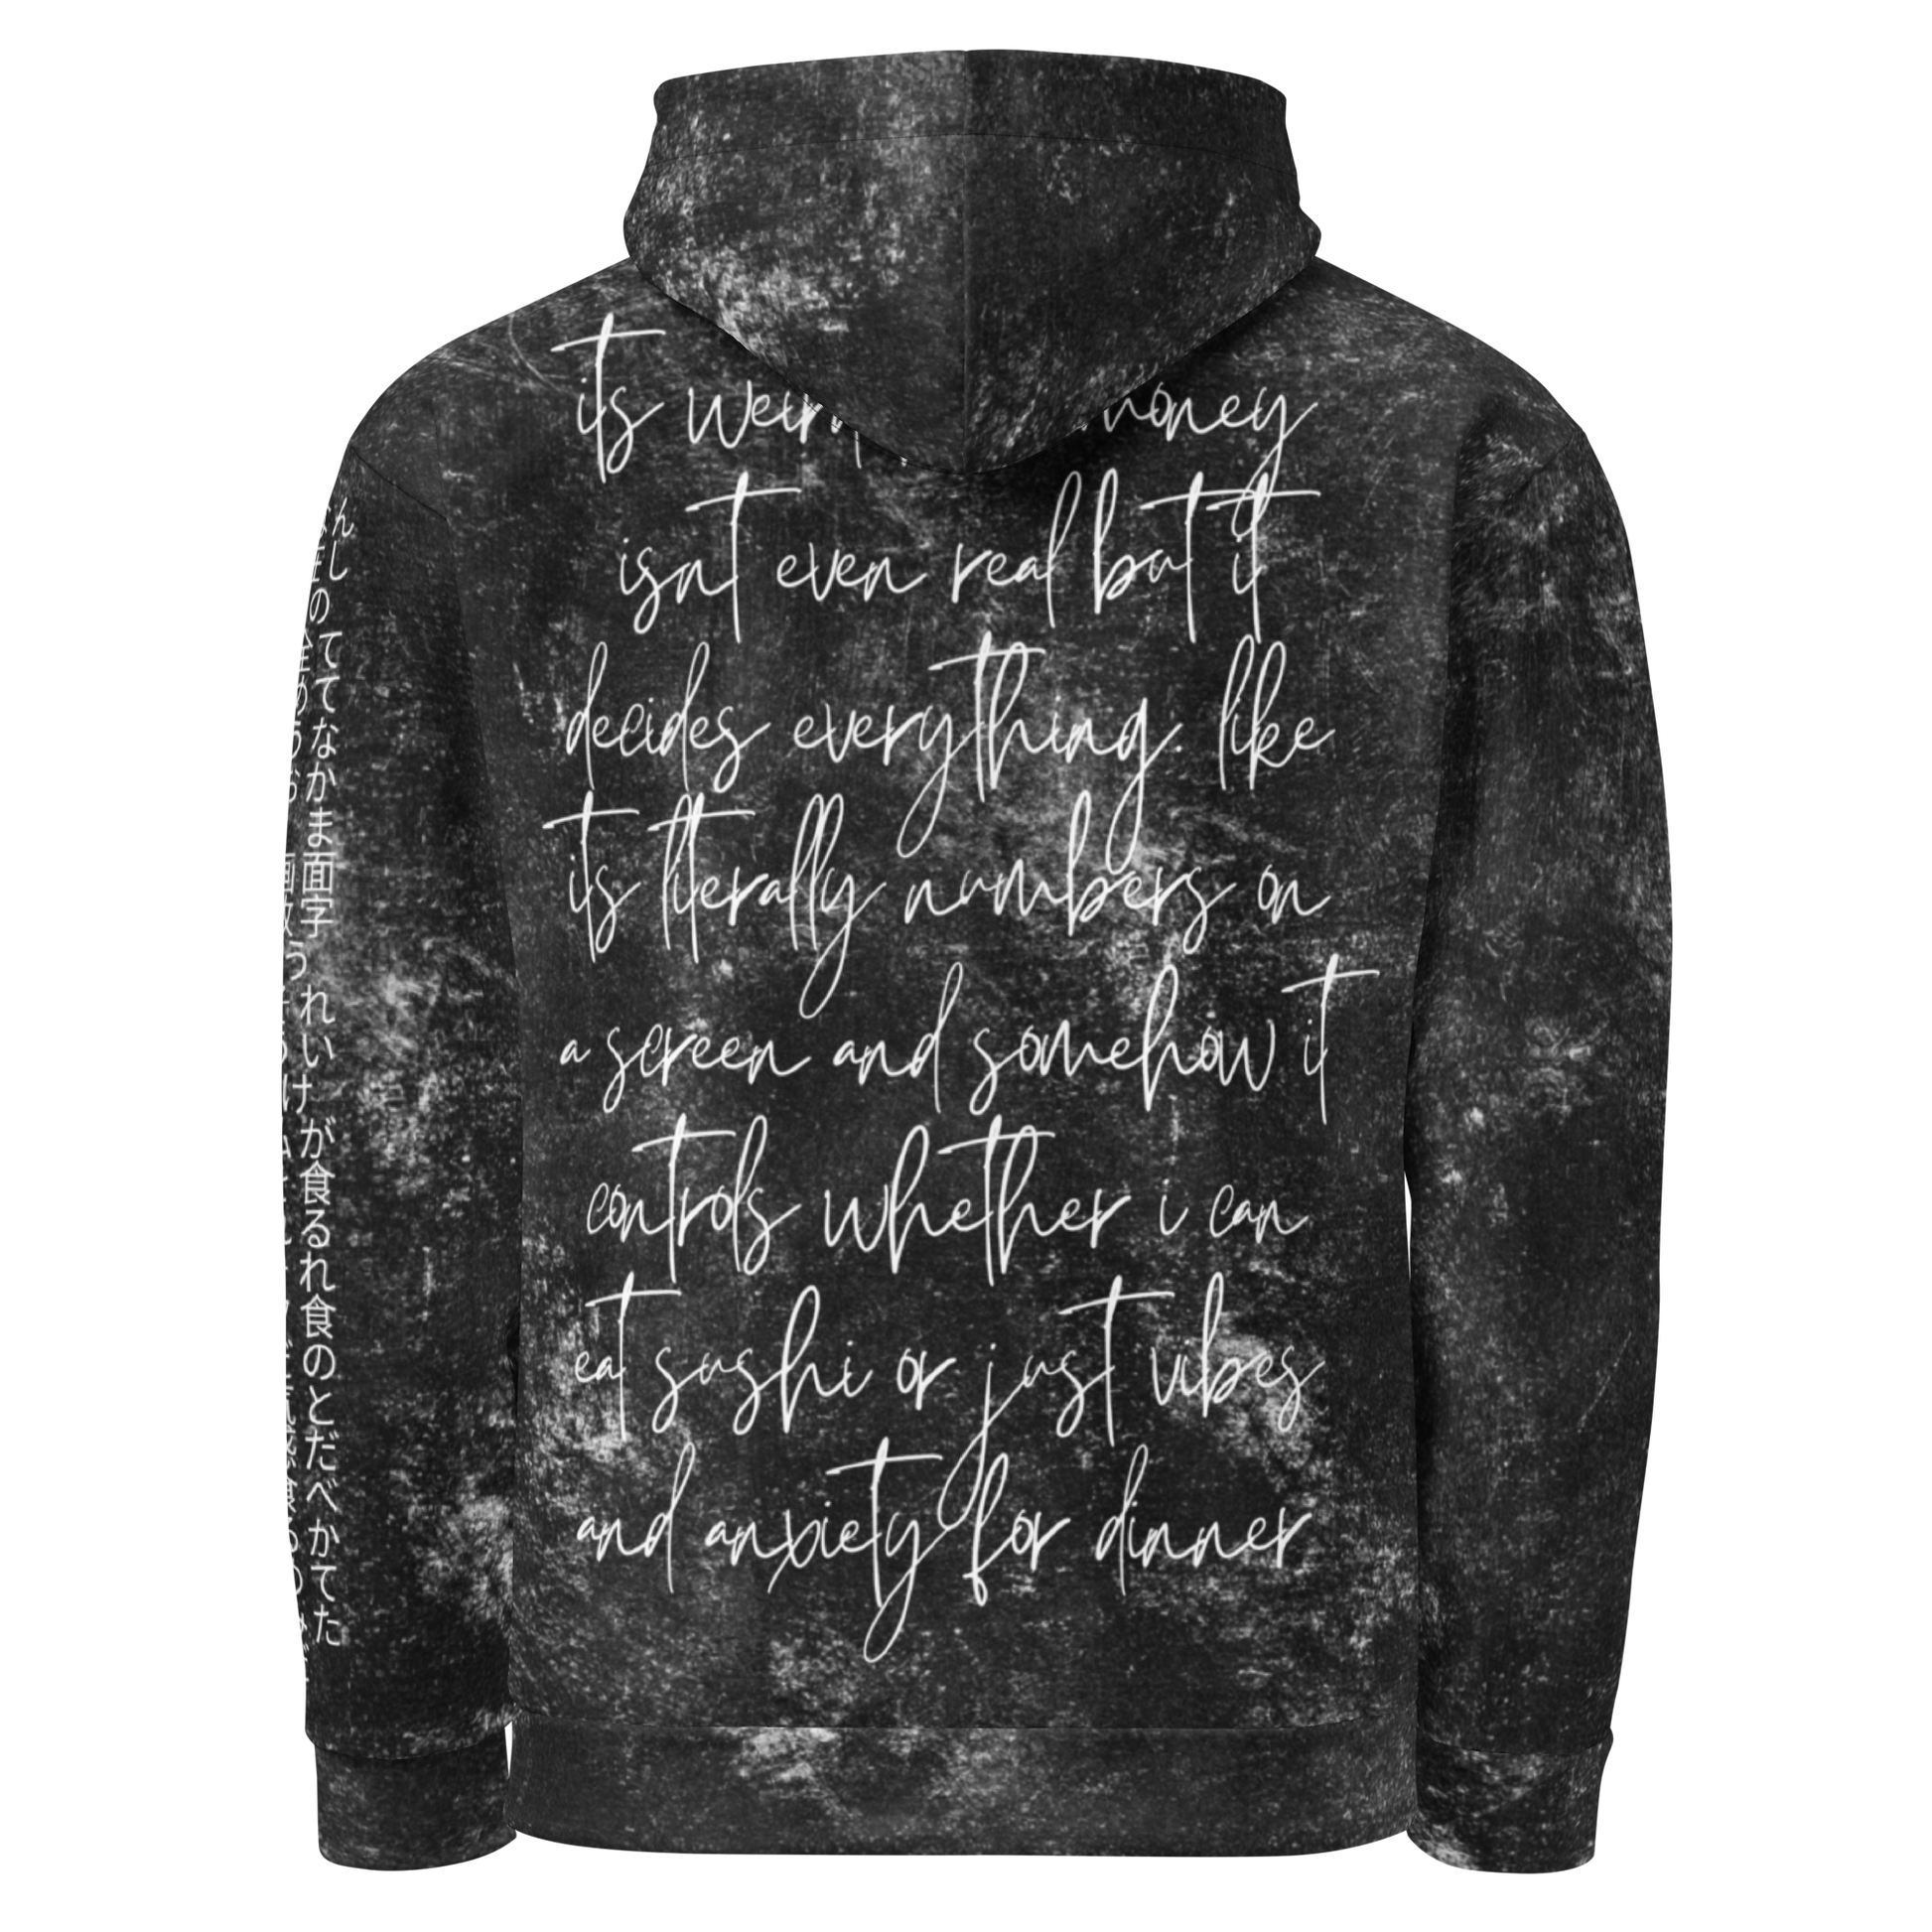 its money
isnt even real but it
decides everything. like
its literally numbers on
a screen and somehow it
controls whether i can
eat sushi or just vibes
and anxiety for dinner
んしててなかま面字られいけが食るれ食のとだべかてた